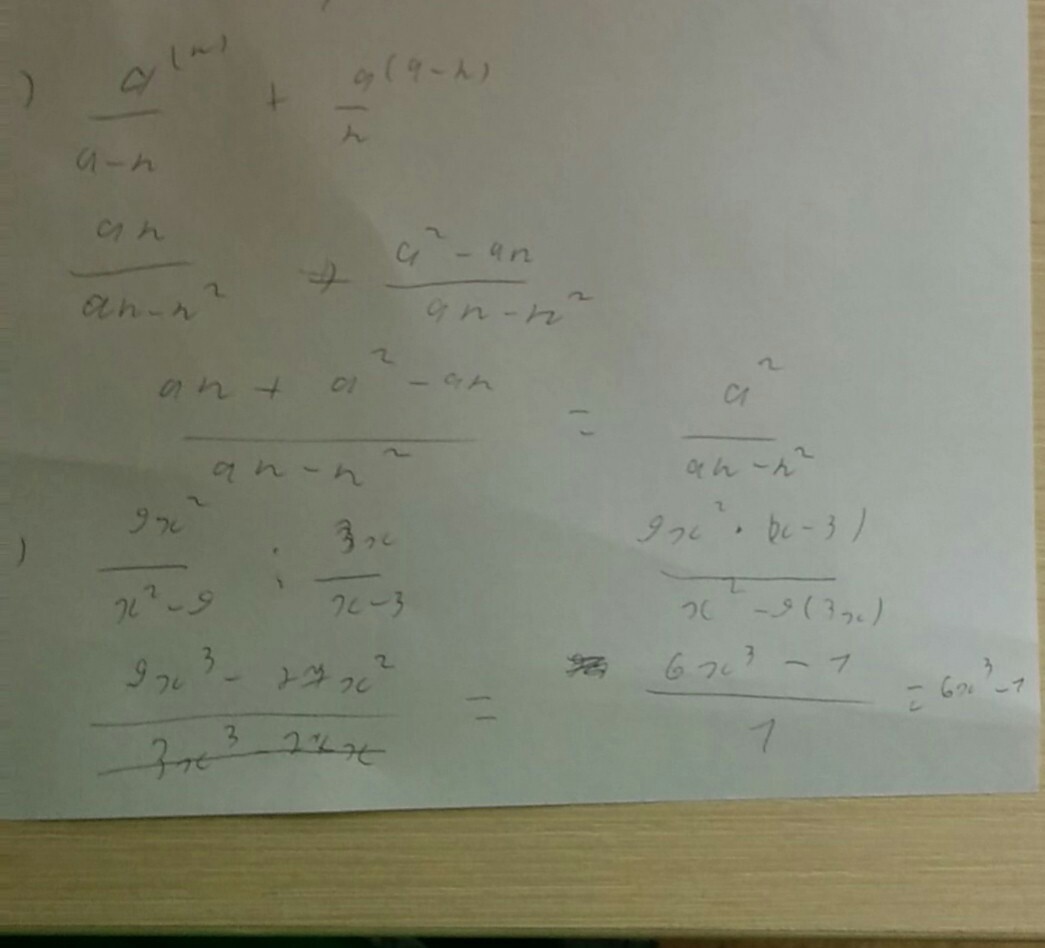 ) a^(n) / a-n + a^(a-n) / n
an / an-n² + a²-an / an-n²
an + a² - an / an-n² = a² / an-n²
) 9x² / x²-9 : 3x / x-3 9x² · (x-3) / x²-9(3x)
9x³ - 27x² / 3x³-27x = 6x³-1 / 1 = 6x³-1